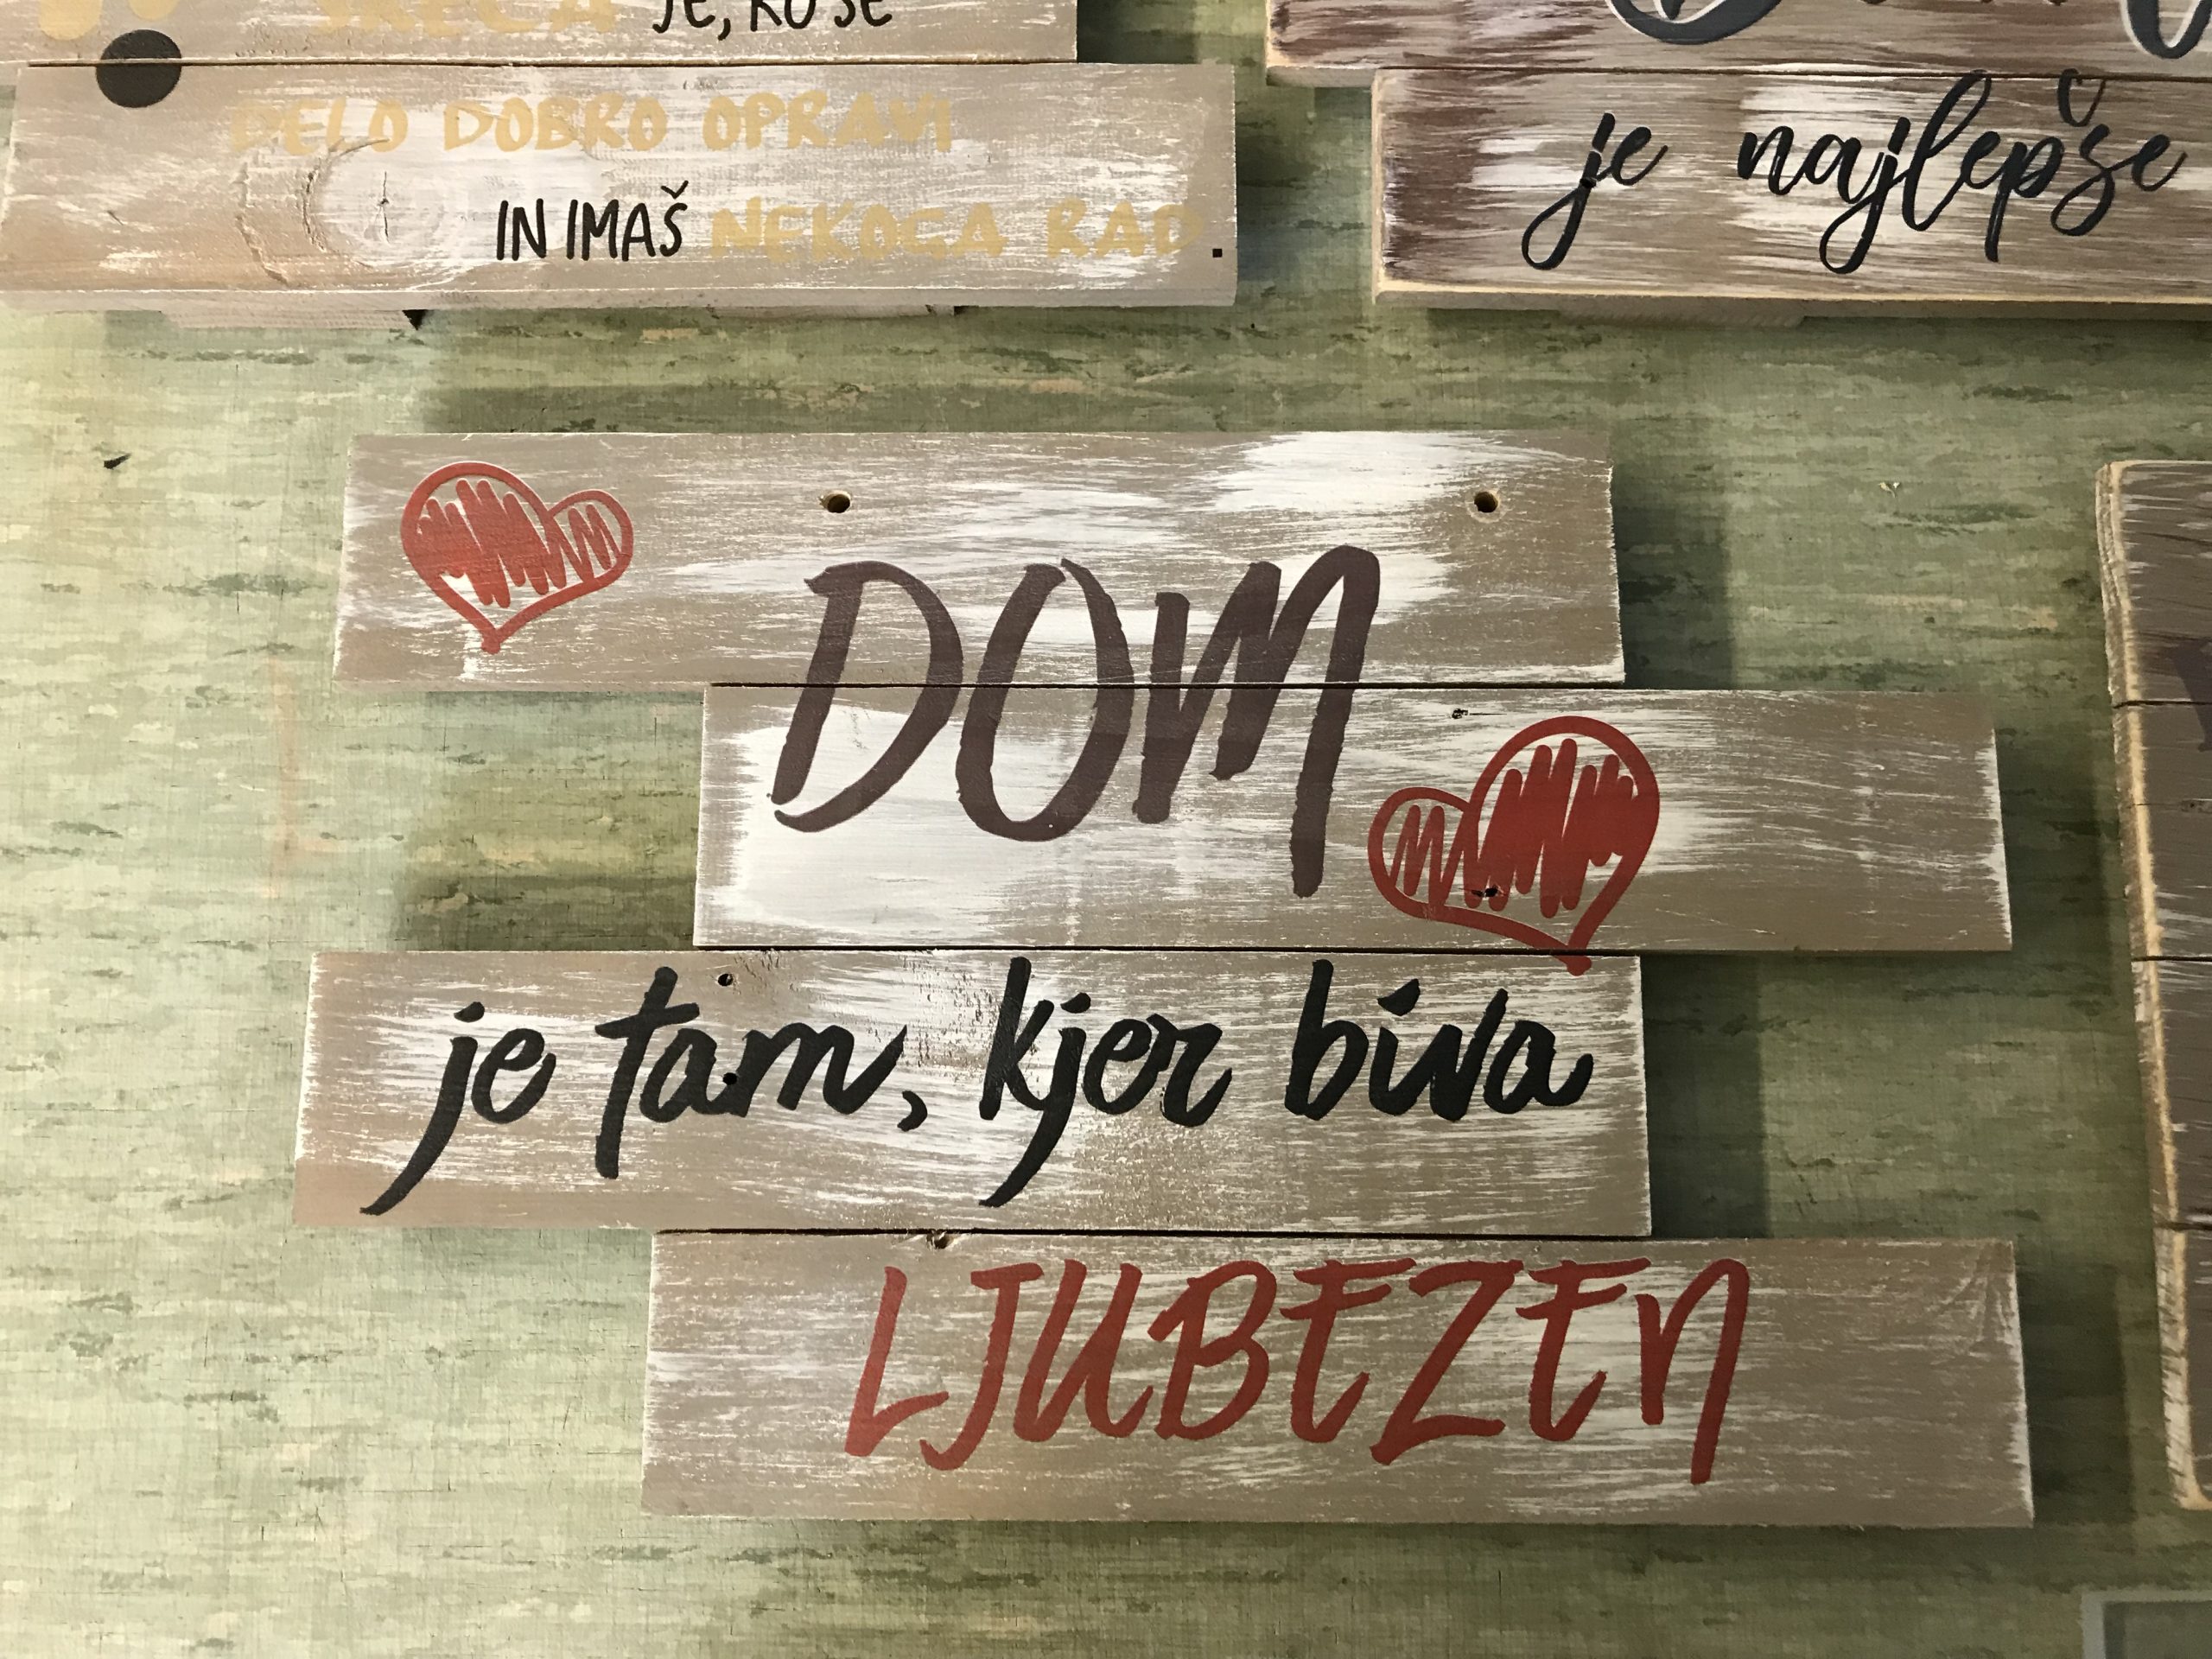 SREČA JE, KO SE
DELO DOBRO OPRAVI
IN IMAŠ NEKOGA RAD.
je najlepše
DOM
je tam, kjer biva
LJUBEZEN